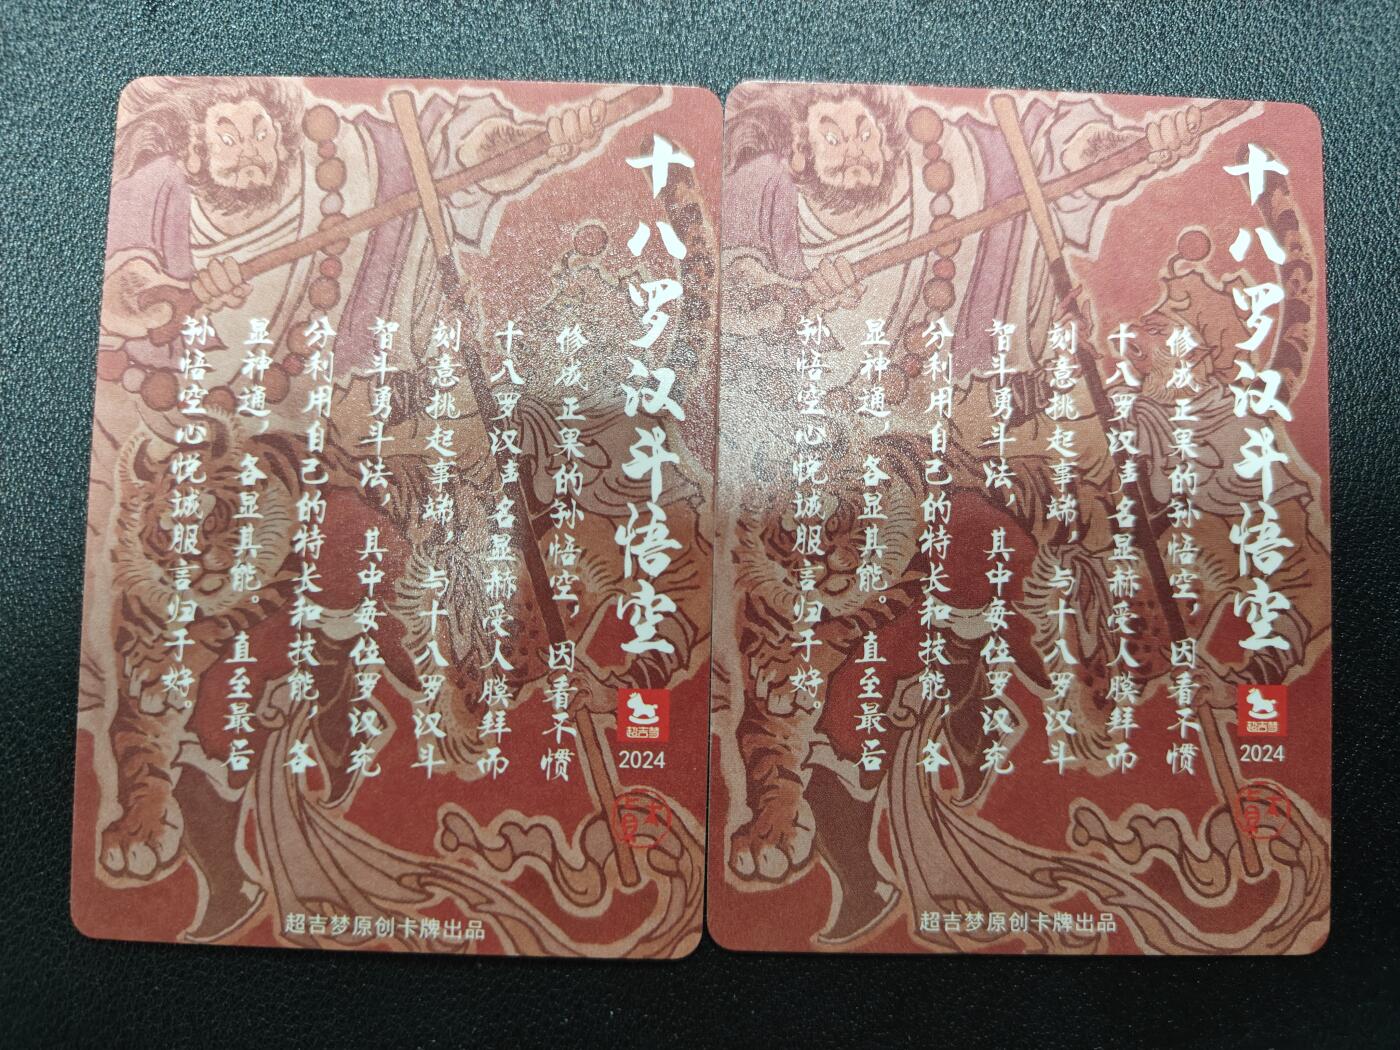 十八罗汉斗悟空
修成正果的孙悟空，因看不惯
十八罗汉声名显赫受人膜拜而
刻意挑起事端，与十八罗汉斗
智斗勇斗法，其中每位罗汉充
分利用自己的特长和技能，各
显神通，各显其能。直至最后
孙悟空心悦诚服言归于好。
超吉梦
2024
超吉梦原创卡牌出品
十八罗汉斗悟空
修成正果的孙悟空，因看不惯
十八罗汉声名显赫受人膜拜而
刻意挑起事端，与十八罗汉斗
智斗勇斗法，其中每位罗汉充
分利用自己的特长和技能，各
显神通，各显其能。直至最后
孙悟空心悦诚服言归于好。
超吉梦
2024
超吉梦原创卡牌出品